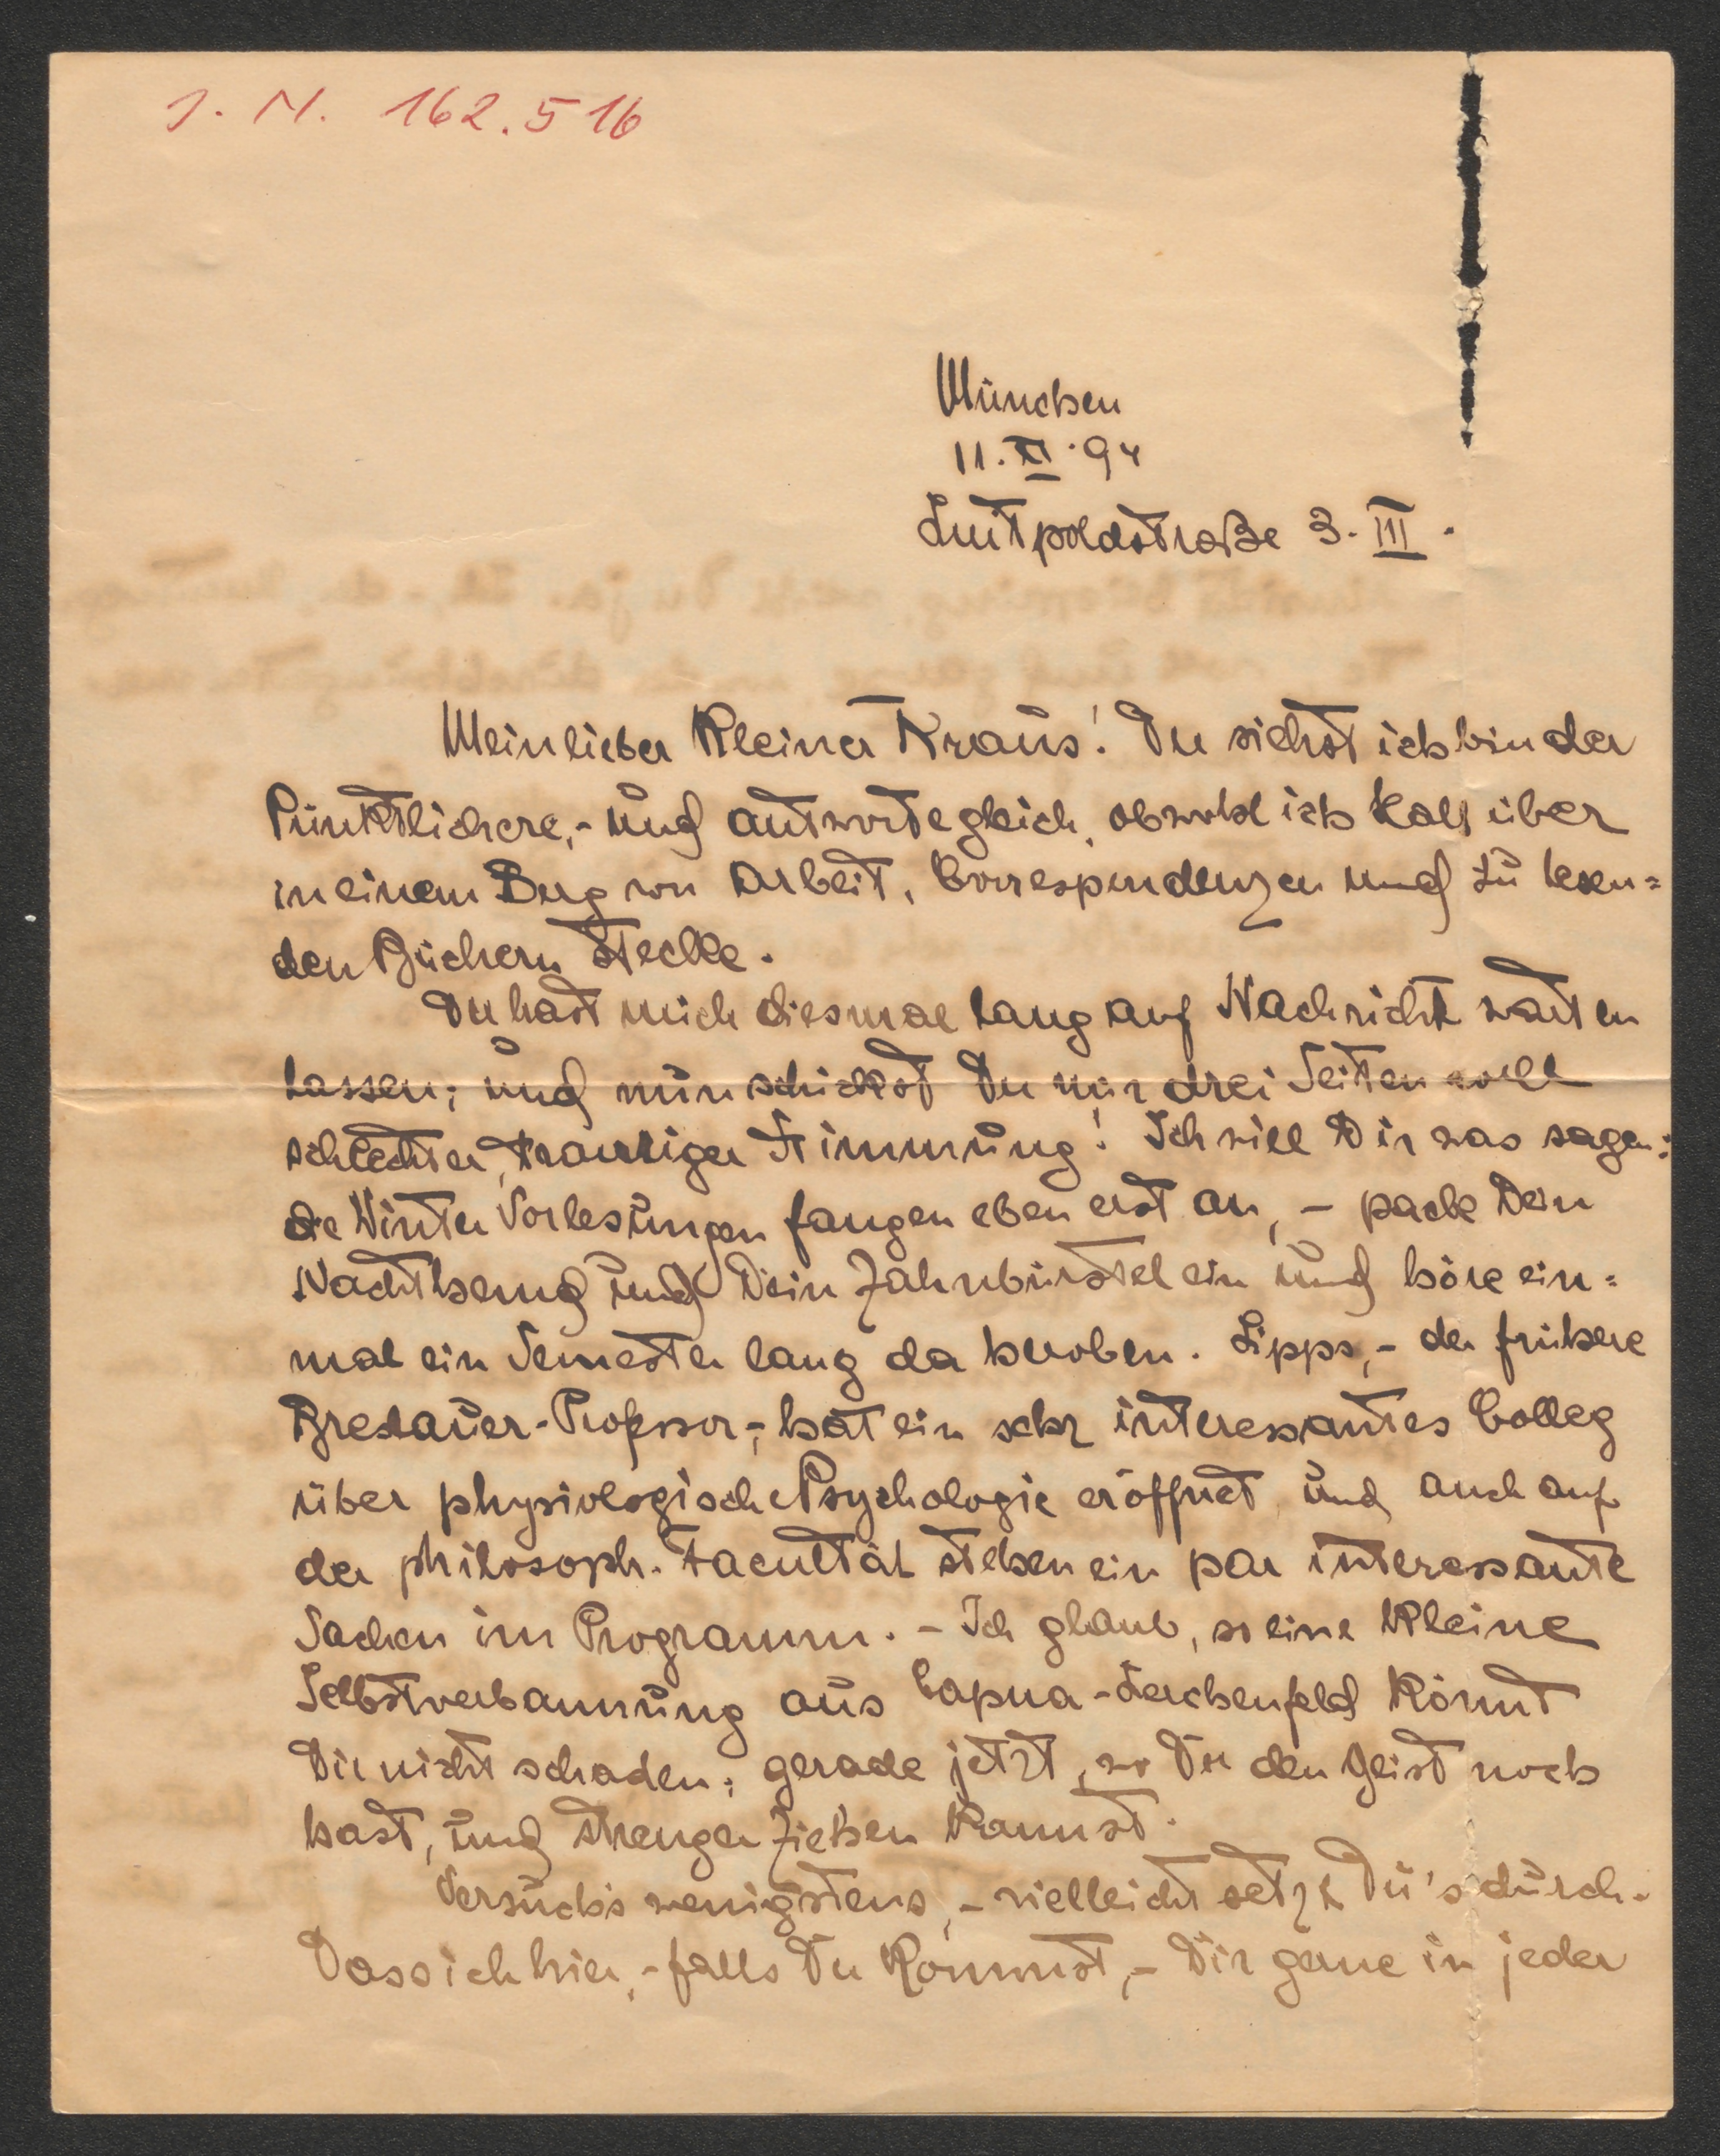 J. N. 162.516
München
11. XI. 94
Luitpoldstraße 3. III.
Mein lieber kleiner Kraus! Du siehst ich bin der
Pünktlichere,- und antworte gleich, obwohl ich kopfüber
in einem Berg von Arbeit, Correspondenzen und zu lesen=
den Büchern stecke.
Du hast mich diesmal lang auf Nachricht warten
lassen; und nun schickst Du mir drei Seiten voll
schlechter, trauriger Stimmung! Ich will Dir was sagen:
die Winter Vorlesungen fangen eben erst an, – packe Dein
Nachthemd und Dein Zahnbürstel ein und höre ein=
mal ein Semester lang da heroben. Lipps,- der frühere
Breslauer-Professor,- hat ein sehr interessantes Colleg
über physiologische Psychologie eröffnet und auch auf
der philosoph. Facultät stehen ein par interessante
Sachen im Programm. – Ich glaub, so eine kleine
Selbstverbannung aus Capua-Lerchenfeld könnt
Dir nicht schaden; gerade jetzt, wo Du den Geist noch
hast, und strenger ziehen kannst.
Versuch's wenigstens,- vielleicht setzt Du's durch.
Dass ich hier,- falls Du kommst,- Dir gerne in jeder